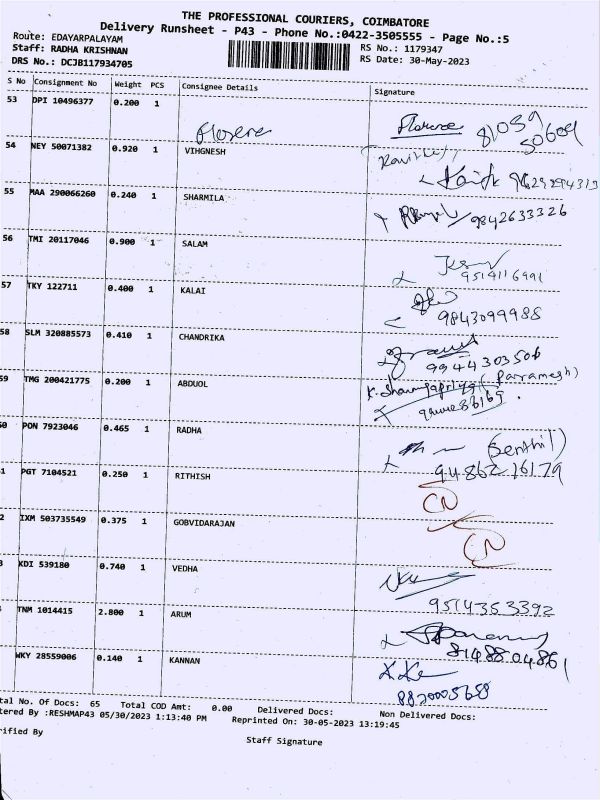 THE PROFESSIONAL COURIERS, COIMBATORE
Delivery Runsheet - P43 - Phone No.:0422-3505555 - Page No.:5
Route: EDAYARPALAYAM
Staff: RADHA KRISHNAN RS No.: 1179347
DRS No.: DCJB117934705 RS Date: 30-May-2023
S No Consignment No Weight PCS Consignee Details Signature
53 DPI 10496377 0.200 1 Florence Florence 81059
50609
54 NEY 50071382 0.920 1 VIHGNESH
55 MAA 290066260 0.240 1 SHARMILA 9842633326
56 TMI 20117046 0.900 1 SALAM 9514116991
57 TKY 122711 0.400 1 KALAI 9843099988
58 SLM 320885573 0.410 1 CHANDRIKA 9944303506
59 TMG 200421775 0.200 1 ABDUOL (Paramesh)
0 PON 7923046 0.465 1 RADHA (Senthil)
94862 16179
1 PGT 7104521 0.250 1 RITHISH CN
2 IXM 503735549 0.375 1 GOBVIDARAJAN CN
3 KDI 539180 0.740 1 VEDHA 9514353392
TNM 1014415 2.800 1 ARUM 8148804861
WKY 28559006 0.140 1 KANNAN 8820005658
tal No. Of Docs: 65 Total COD Amt: 0.00 Delivered Docs: Non Delivered Docs:
tered By :RESHMAP43 05/30/2023 1:13:40 PM Reprinted On: 30-05-2023 13:19:45
rified By Staff Signature